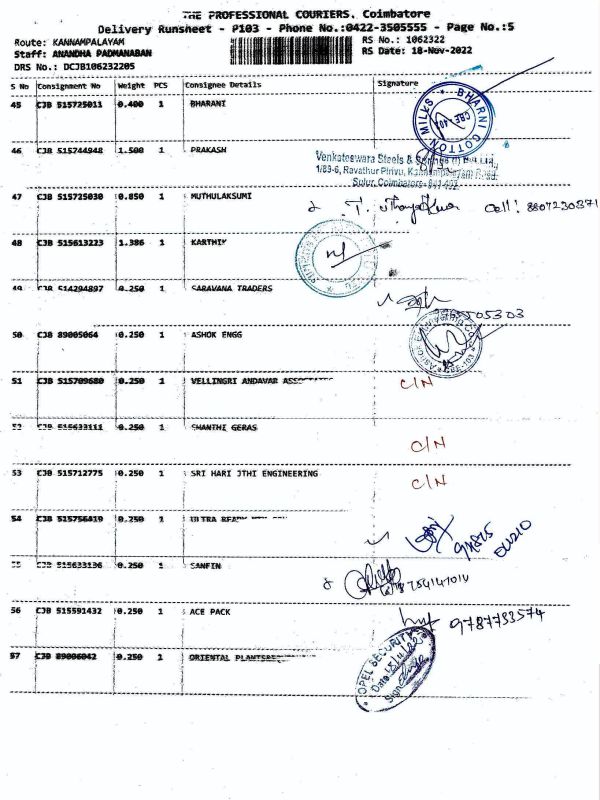 THE PROFESSIONAL COURIERS. Coimbatore
Delivery Runsheet - P103 - Phone No.:0422-3505555 - Page No.:5
Route: KANNAMPALAYAM RS No.: 1062322
Staff: ANANDHA PADMANABAN RS Date: 18-Nov-2022
DRS No.: DCJB106232205
S No Consignment No Weight PCS Consignee Details Signature
45 CJB 515725011 0.400 1 BHARANI
BHARNI COTTON MILLS
46 CJB 515744948 1.500 1 PRAKASH
Venkateswara Steels & Springs (I) Pvt Ltd.,
1/89-6, Ravathur Pirivu, Kannampalayam Post.
Sulur, Coimbatore- 641 402.
47 CJB 515725030 0.850 1 MUTHULAKSUMI
Cell: 8807230371
48 CJB 515613223 1.386 1 KARTHIK
49 CJB 514294897 0.250 1 SARAVANA TRADERS
50 CJB 89005064 0.250 1 ASHOK ENGG
51 CJB 515709680 0.250 1 VELLINGRI ANDAVAR
C/N
52 CJB 515633111 0.250 1 SHANTHI GERAS
C/N
53 CJB 515712775 0.250 1 SRI HARI JTHI ENGINEERING
C/N
54 CJB 515756819 0.250 1 ULTRA READY
55 CJB 515633136 0.250 1 SANFIN
56 CJB 515591432 0.250 1 ACE PACK
9787733574
57 CJB 89006042 0.250 1 ORIENTAL
OPEL SECURITY
Date
Sign